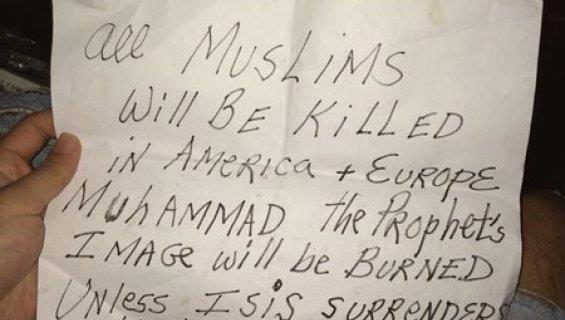 all MUSLiMS
Will BE KiLLED
iN AMERicA + EUROPE
MUhAMMAD the PRophet's
IMAGE will be BURNED
UNless ISiS SURRENDERS